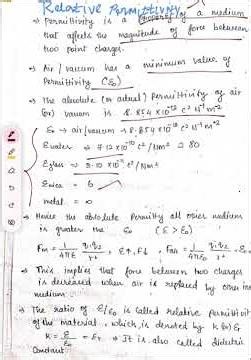 Relative Permittivity
→ Permittivity is a property of a medium
that affects the magnitude of force between
two point charges.
→ Air / vaccum has a minimum value of
Permittivity (ε₀)
→ The absolute (or actual) Permittivity of air
(or) vacuum is 8.854 x10⁻¹² c² N⁻¹ m⁻²
ε₀ → air/vacuum → 8.854 x10⁻¹² c² N⁻¹ m⁻²
εwater → 7.12 x10⁻¹⁰ c²/Nm² = 80
εglass → c²/Nm²
εmica = 6
metal = ∞
→ Hence the absolute Permitty all other medium
is greater the ε₀ (ε > ε₀)
Fm = 1/4πε q₁q₂/r² , ε↑, F↓ , Fair = 1/4πε₀ q₁q₂/r²
→ This implies that force between two charges
is decreased when air is replaced by other
medium.
→ The ratio of ε/ε₀ is called relative permitti
of the material, which is denoted by k (or) εr
k = ε/ε₀ = εr → It is also called dielectric
Constant